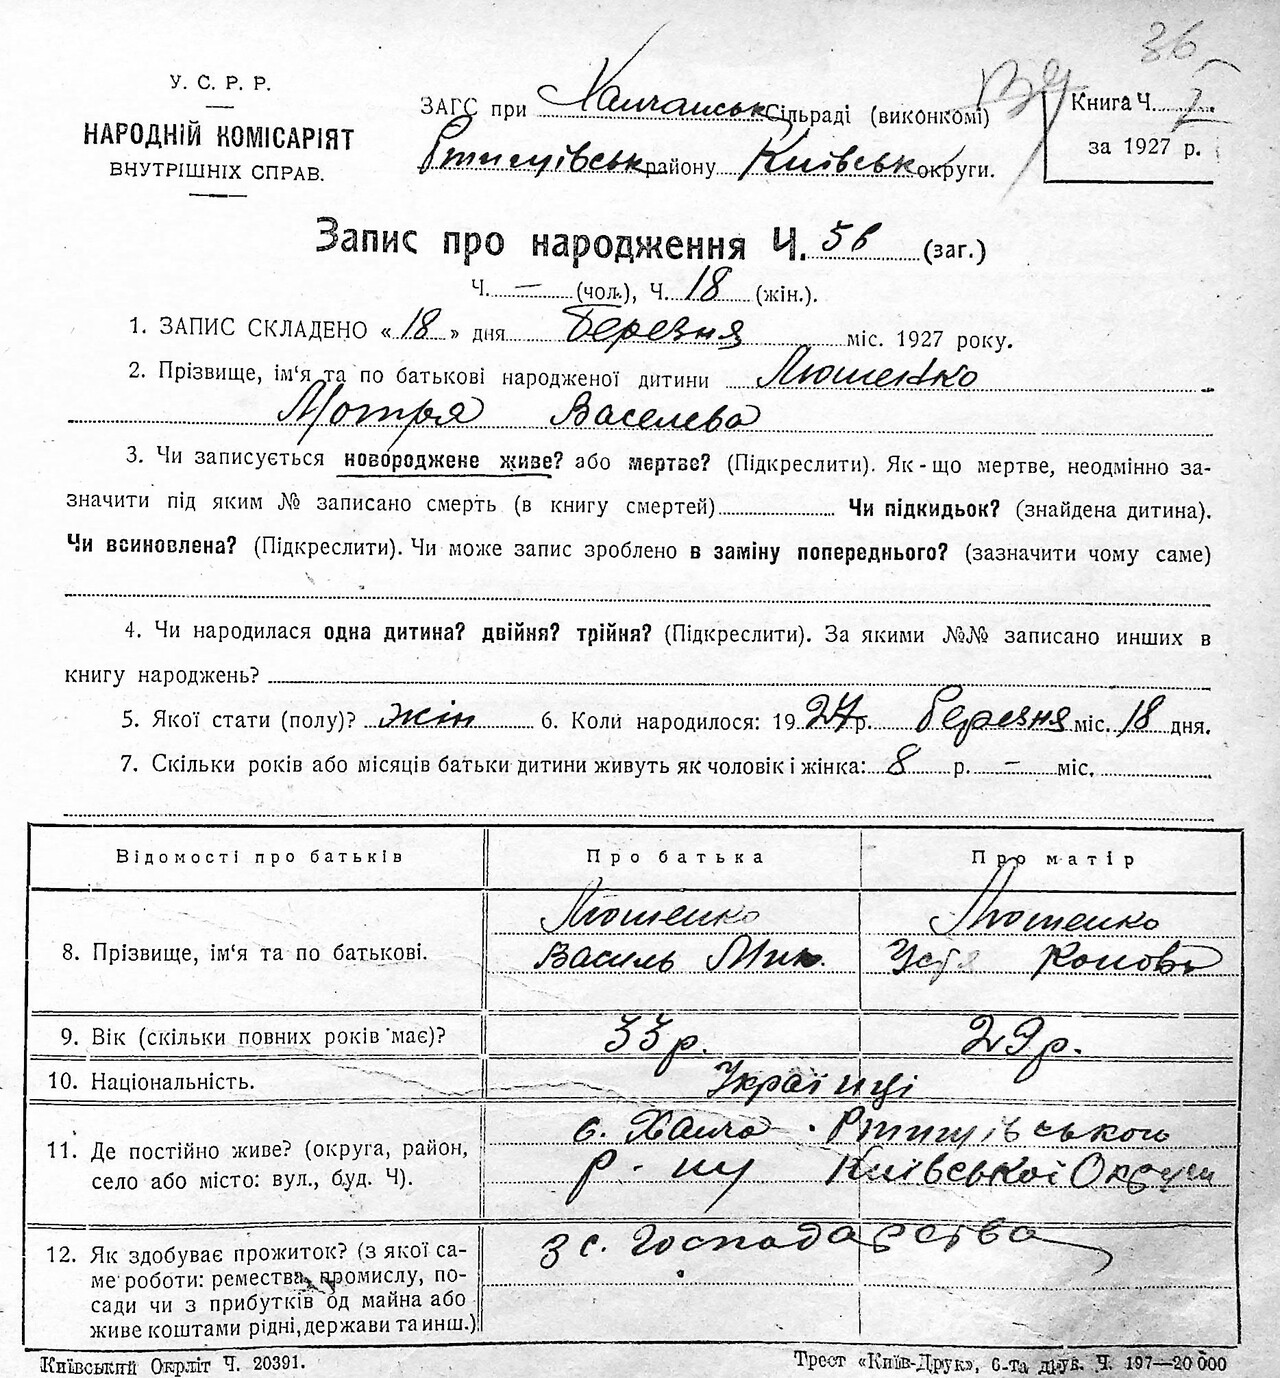 36
У. С. Р. Р.
НАРОДНІЙ КОМІСАРІЯТ
ВНУТРІШНІХ СПРАВ.
ЗАГС при Халчанськ Сільраді (виконкомі)
Ртищівськ району Київськ округи.
Книга Ч. 7
за 1927 р.
Запис про народження Ч. 56 (заг.)
Ч. — (чол.), Ч. 18 (жін.).
1. ЗАПИС СКЛАДЕНО « 18 » дня Березня міс. 1927 року.
2. Прізвище, ім‘я та по батькові народженої дитини Люшенко
Мотря Васелева
3. Чи записується новороджене живе? або мертве? (Підкреслити). Як-що мертве, неодмінно за-
значити під яким № записано смерть (в книгу смертей) Чи підкидьок? (знайдена дитина).
Чи всиновлена? (Підкреслити). Чи може запис зроблено в заміну попереднього? (зазначити чому саме)
4. Чи народилася одна дитина? двійня? трійня? (Підкреслити). За якими №№ записано инших в
книгу народжень?
5. Якої стати (полу)? жін 6. Коли народилося: 1927 р. березня міс. 18 дня.
7. Скільки років або місяців батьки дитини живуть як чоловік і жінка: 8 р. — міс.
Відомості про батьків Про батька Про матір
8. Прізвище, ім‘я та по батькові. Люшенко Василь Мик. Люшенко Устя
9. Вік (скільки повних років має)? 33 р. 29 р.
10. Національність. Українці
11. Де постійно живе? (округа, район, село або місто: вул., буд. Ч). с. Халча Ртищівського
р-ну Київської Округи
12. Як здобуває прожиток? (з якої са-
ме роботи: ремества, промислу, по-
сади чи з прибутків од майна або
живе коштами рідні, держави та инш.)
з с. Господарства
Київський Окрліт Ч. 20391.
Трест «Київ-Друк», 6-та друк. Ч. 197—20 000